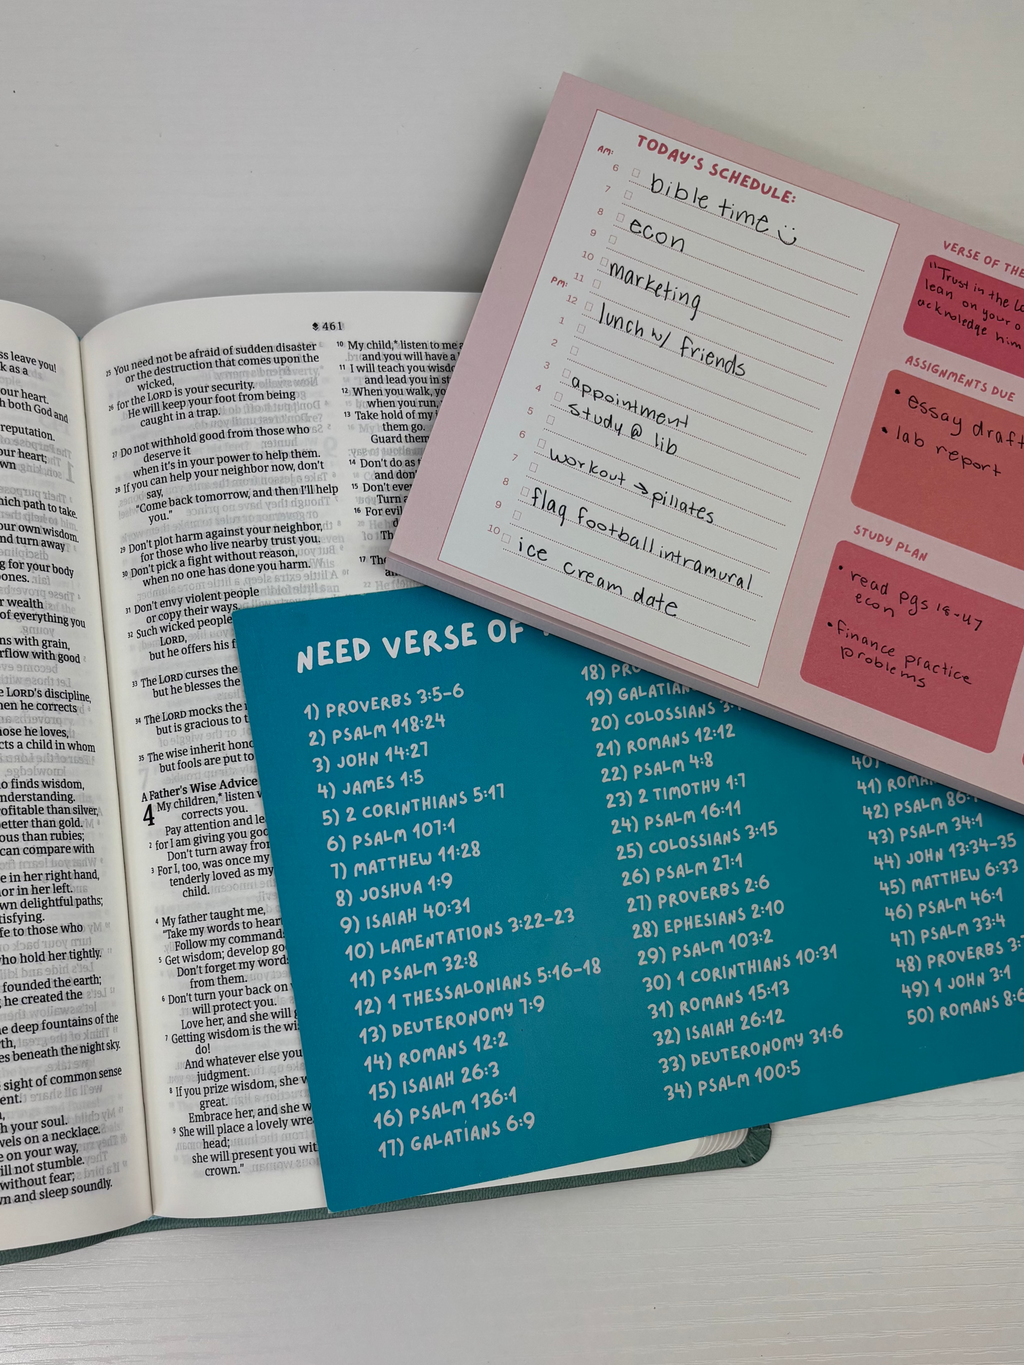 461
25 You need not be afraid of sudden disaster
or the destruction that comes upon the
wicked,
26 for the LORD is your security.
He will keep your foot from being
caught in a trap.
27 Do not withhold good from those who
deserve it
when it's in your power to help them.
28 If you can help your neighbor now, don't
say,
"Come back tomorrow, and then I'll help
you."
29 Don't plot harm against your neighbor,
for those who live nearby trust you.
30 Don't pick a fight without reason,
when no one has done you harm.
31 Don't envy violent people
or copy their ways.
32 Such wicked people
LORD,
but he offers his
33 The LORD curses the
but he blesses the
34 The LORD mocks the
but is gracious to
35 The wise inherit
but fools are put to
A Father's Wise Advice
4 My children,* listen
corrects you.
Pay attention and
2 for I am giving you
Don't turn away
3 For I, too, was once my
tenderly loved as my
child.
4 My father taught me,
"Take my words to heart
Follow my
5 Get wisdom; develop
Don't forget my
from them.
6 Don't turn your back on
will protect you.
Love her, and she will
7 Getting wisdom is the
do!
And whatever else you
judgment.
8 If you prize wisdom, she
great.
Embrace her, and she
9 She will place a lovely
head;
she will present you
crown."
10 My child,* listen to me
and you will have a
11 I will teach you
and lead you in
12 When you walk,
when you run,
13 Take hold of my
them go.
Guard them
14 Don't do as
and don't
15 Don't
Turn
16 For
17
leave you!
k as a
our heart.
h both God and
reputation.
our heart;
own
which path to take.
our own wisdom.
and turn away
g for your body
bones.
r wealth
of everything you
ns with grain,
with good
LORD's discipline,
when he corrects
those he loves,
a child in whom
finds wisdom,
than silver,
better than gold.
than rubies;
can compare with
in her right hand,
or in her left.
delightful paths;
to those who
who hold her tightly.
founded the earth;
he created the
deep fountains of the
beneath the night sky.
sight of common sense
your soul.
on a necklace.
on your way,
will not stumble.
without fear;
and sleep soundly.
TODAY'S SCHEDULE:
AM:
6 bible time
7
8 econ
9
10 marketing
11
PM:
12 lunch w/ friends
1
2
3 appointment
4 study @ lib
5
6 workout → pillates
7
8 flag football intramural
9
10 ice cream date
VERSE OF THE
"Trust in the
lean on your
acknowledge him
ASSIGNMENTS DUE
• essay draft
• lab report
STUDY PLAN
• read pgs 18-47
econ
• finance practice
problems
NEED VERSE OF
1) PROVERBS 3:5-6
2) PSALM 118:24
3) JOHN 14:27
4) JAMES 1:5
5) 2 CORINTHIANS 5:17
6) PSALM 107:1
7) MATTHEW 11:28
8) JOSHUA 1:9
9) ISAIAH 40:31
10) LAMENTATIONS 3:22-23
11) PSALM 32:8
12) 1 THESSALONIANS 5:16-18
13) DEUTERONOMY 7:9
14) ROMANS 12:2
15) ISAIAH 26:3
16) PSALM 136:1
17) GALATIANS 6:9
18)
19)
20) COLOSSIANS
21) ROMANS 12:12
22) PSALM 4:8
23) 2 TIMOTHY 1:7
24) PSALM 16:11
25) COLOSSIANS 3:15
26) PSALM 27:1
27) PROVERBS 2:6
28) EPHESIANS 2:10
29) PSALM 103:2
30) 1 CORINTHIANS 10:31
31) ROMANS 15:13
32) ISAIAH 26:12
33) DEUTERONOMY 31:6
34) PSALM 100:5
40)
41)
42) PSALM
43) PSALM 34:1
44) JOHN 13:34-35
45) MATTHEW 6:33
46) PSALM 46:1
47) PSALM 33:4
48) PROVERBS
49) 1 JOHN 3:1
50) ROMANS